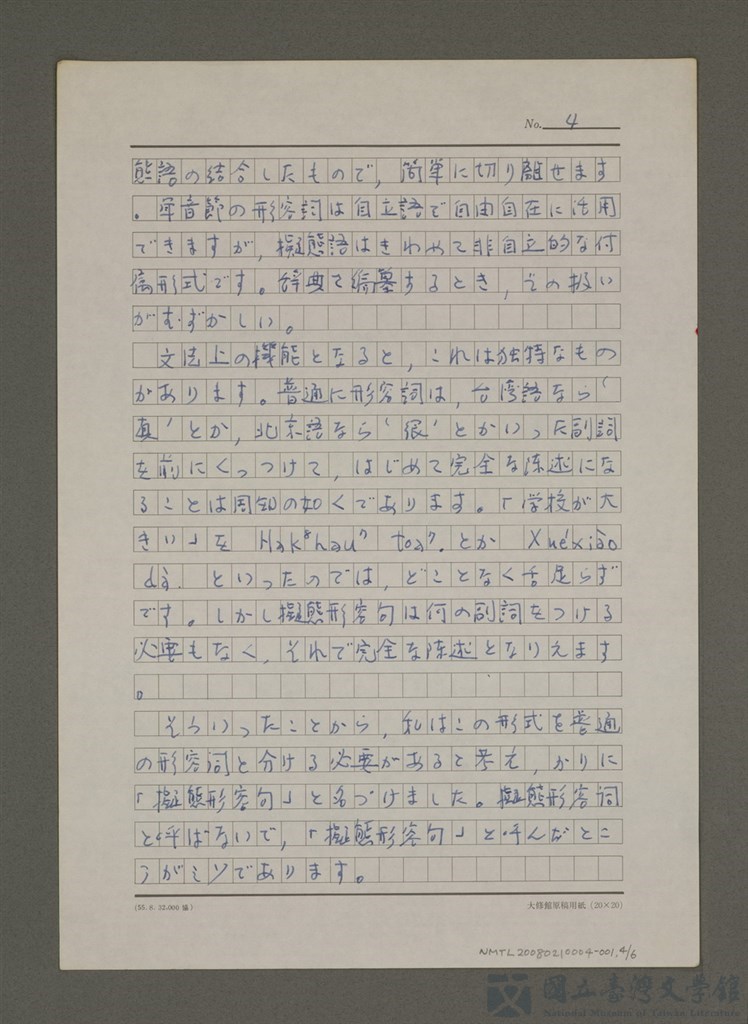 No. 4
態語の結合したもので，簡単に切り離せます
。単音節の形容詞は自立語で自由自在に活用
できますが，擬態語はきわめて非自立的な付
属形式です。辞典を編纂するとき，その扱い
がむずかしい。
文法上の機能となると，これは独特なもの
があります。普通に形容詞は，台湾語なら‘
真’とか，北京語なら‘很’とかいった副詞
を前にくっつけて，はじめて完全な陳述にな
ることは周知の如くであります。「学校が大
きい」を Hak⁸hau⁷ toa⁷. とか Xuéxiào
dà. といったのでは，どことなく舌足らず
です。しかし擬態形容句は何の副詞をつける
必要もなく，それで完全な陳述となりえます
。
そういったことから，私はこの形式を普通
の形容詞と分ける必要があると考え，かりに
「擬態形容句」と名づけました。擬態形容詞
と呼ばないで，「擬態形容句」と呼んだとこ
ろがミソであります。
(55. 8. 32,000 協)
大修館原稿用紙 (20×20)
NMTL20080210004-001, 4/6
國立臺灣文學館
National Museum of Taiwan Literature